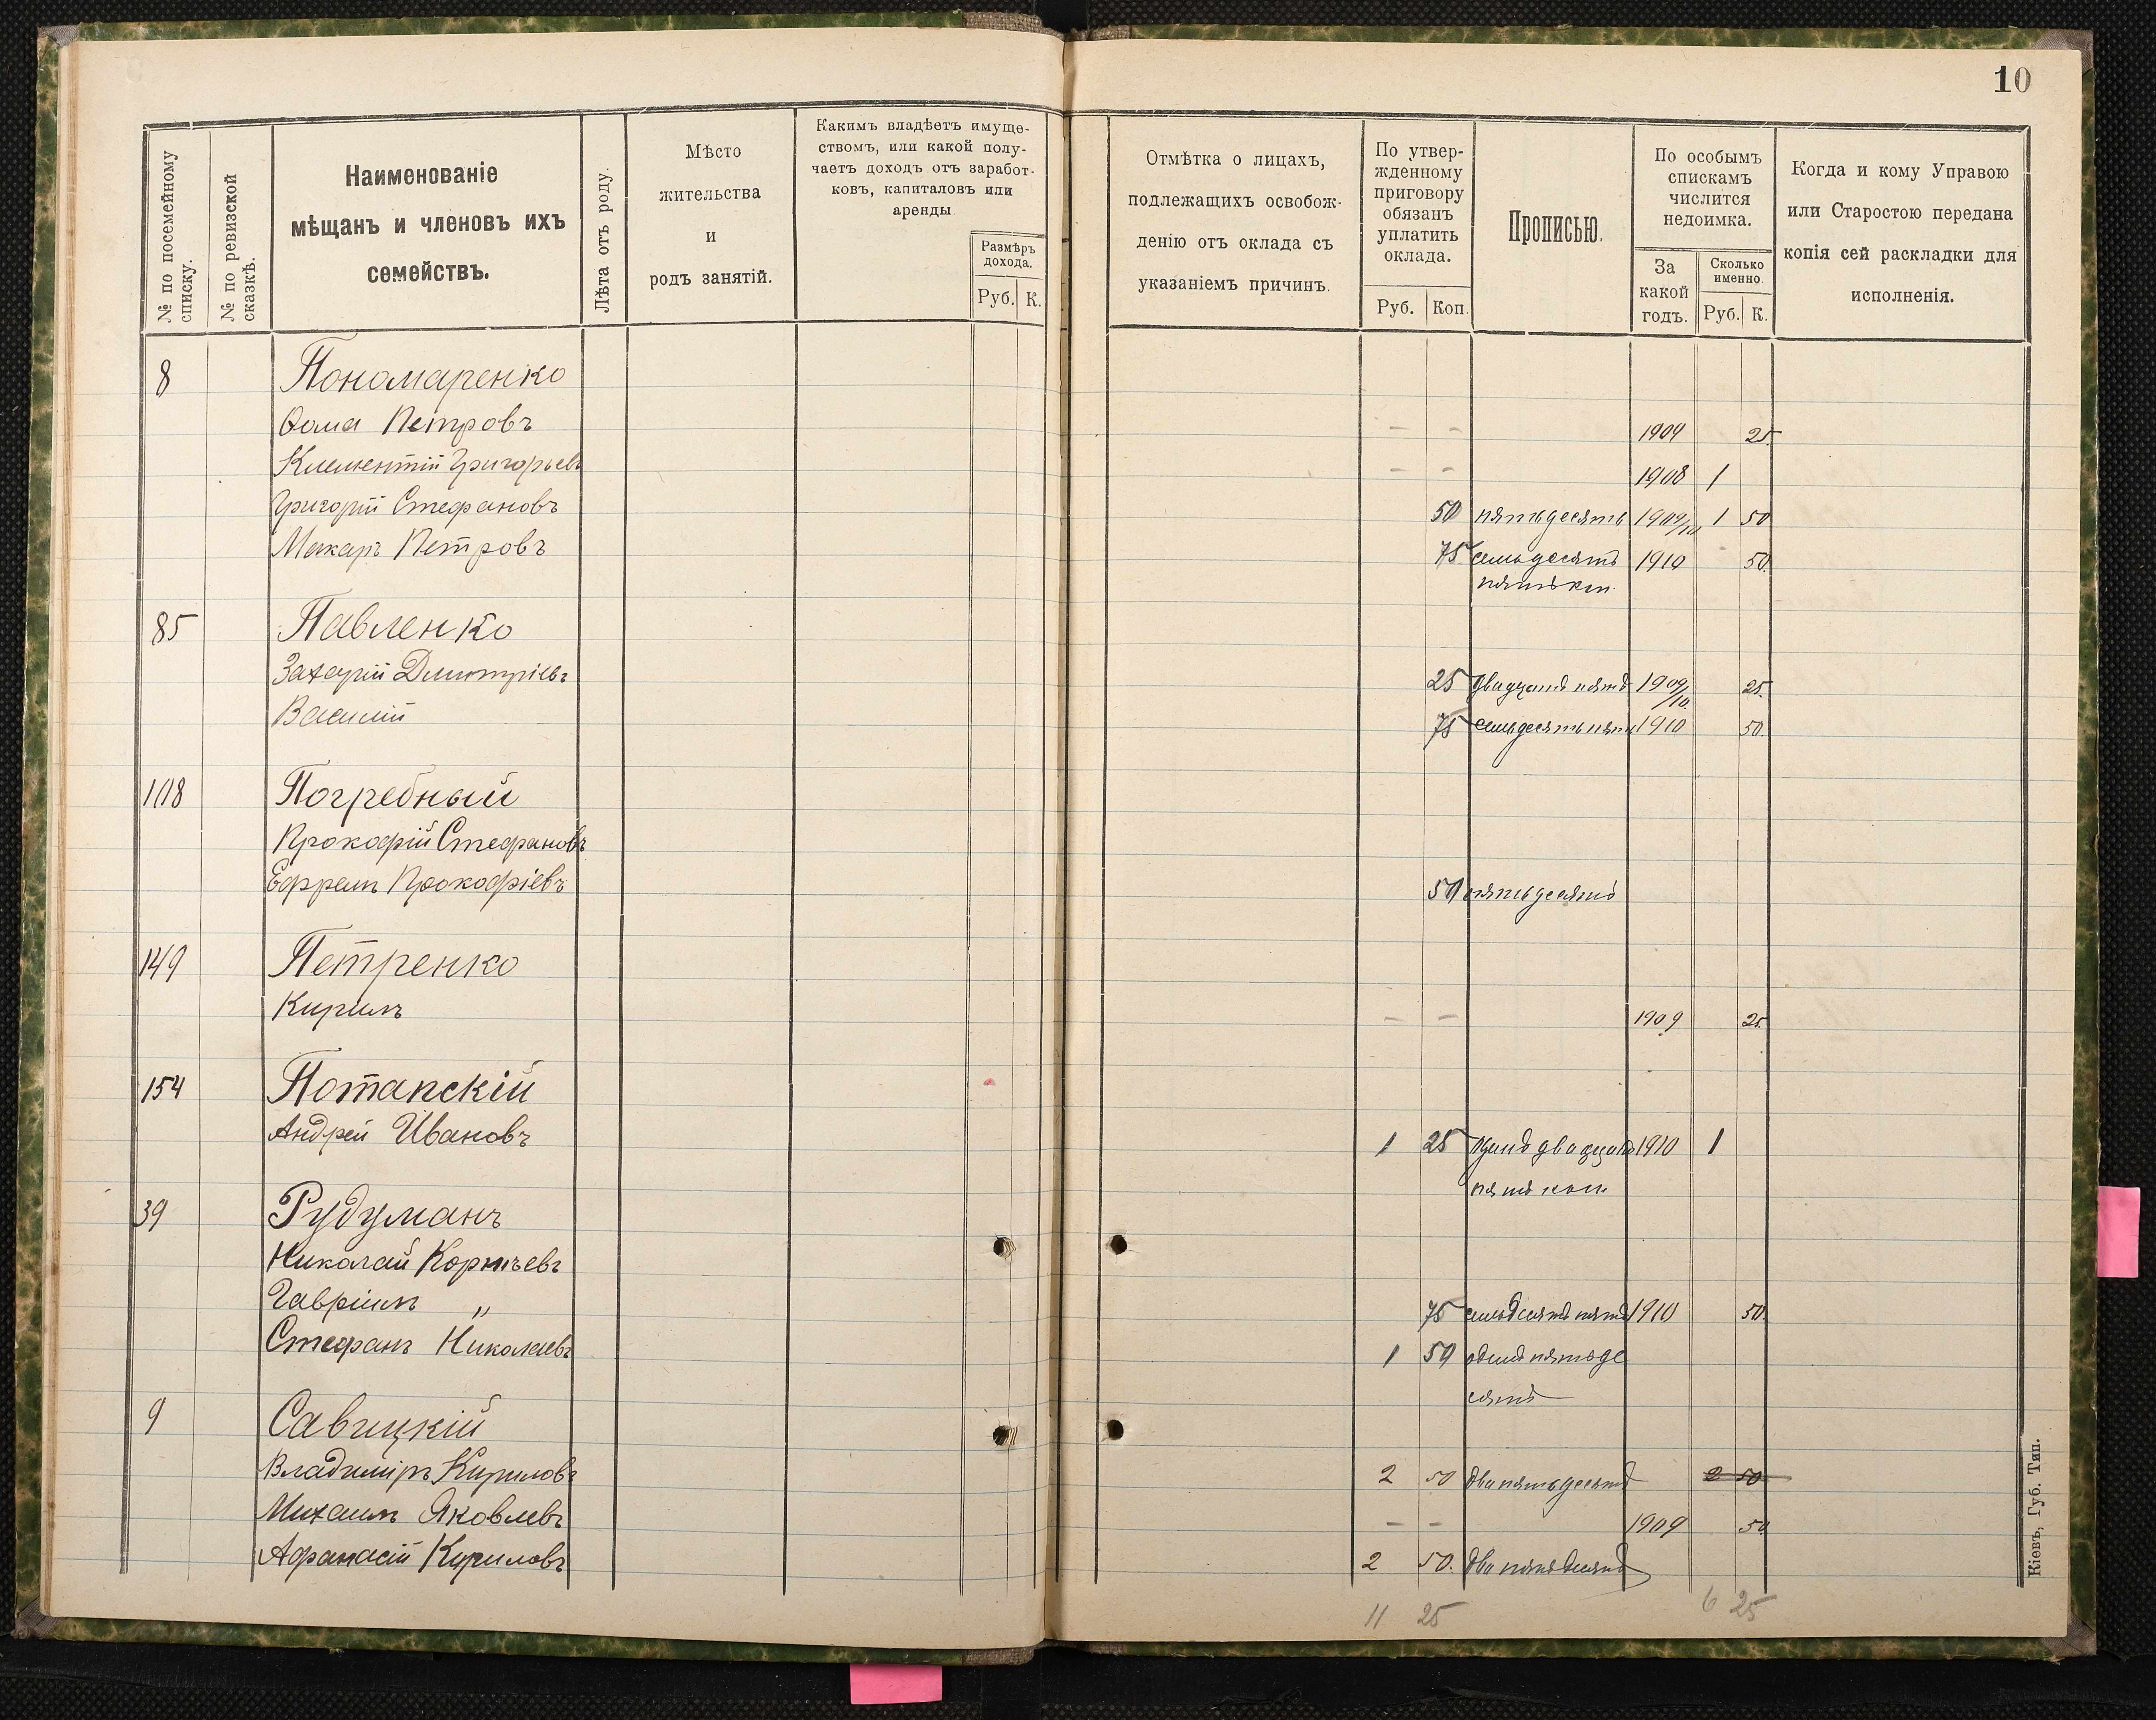 10
№ по посемейному списку.
№ по ревизской сказкѣ.
Наименованіе
мѣщанъ и членовъ ихъ
семействъ.
Лѣта отъ роду.
Мѣсто
жительства
и
родъ занятій.
Какимъ владѣетъ имуще-
ствомъ, или какой полу-
чаетъ доходъ отъ заработ-
ковъ, капиталовъ или
аренды
Размѣръ
дохода.
Руб. К.
Отмѣтка о лицахъ,
подлежащихъ освобож-
денію отъ оклада съ
указаніемъ причинъ.
По утвер-
жденному
приговору
обязанъ
уплатить
оклада.
Руб. Коп.
Прописью.
По особымъ
спискамъ
числится
недоимка.
За
какой
годъ.
Сколько
именно.
Руб. К.
Когда и кому Управою
или Старостою передана
копія сей раскладки для
исполненія.
8 Пономаренко
Ѳома Петровъ – – 1909 25.
Климентій Григорьевъ – – 1908 1
Григорій Стефановъ 50 пятьдесятъ 1909/10 1 50
Макаръ Петровъ 75 семьдесятъ 1910 - 50.
пять коп.
85 Павленко
Захарій Дмитріевъ 25 двадцать пять 1909/10 25.
Василій 75 семьдесятъ пять 1910 50.
108 Погребный
Прокофій Стефановъ
Ефремъ Прокофіевъ 50 пятьдесятъ
149 Петренко
Кирилъ – – 1909 25.
154 Потапскій
Андрей Ивановъ 1 25 одинъ двадцать 1910 1
пять коп.
39 Рудуманъ
Николай Корніевъ
Гавріилъ „ 75 семьдесятъ пять 1910 50.
Стефанъ Николаевъ 1 50 одинъ пятьде
сятъ
9 Савицкій
Владиміръ Кириловъ 2 50 два пятьдесятъ 2 50
Михаилъ Яковлевъ – – 1909 50
Афанасій Кириловъ 2 50. два пятьдесятъ
11 25 6 25
Кіевъ, Губ. Тип.